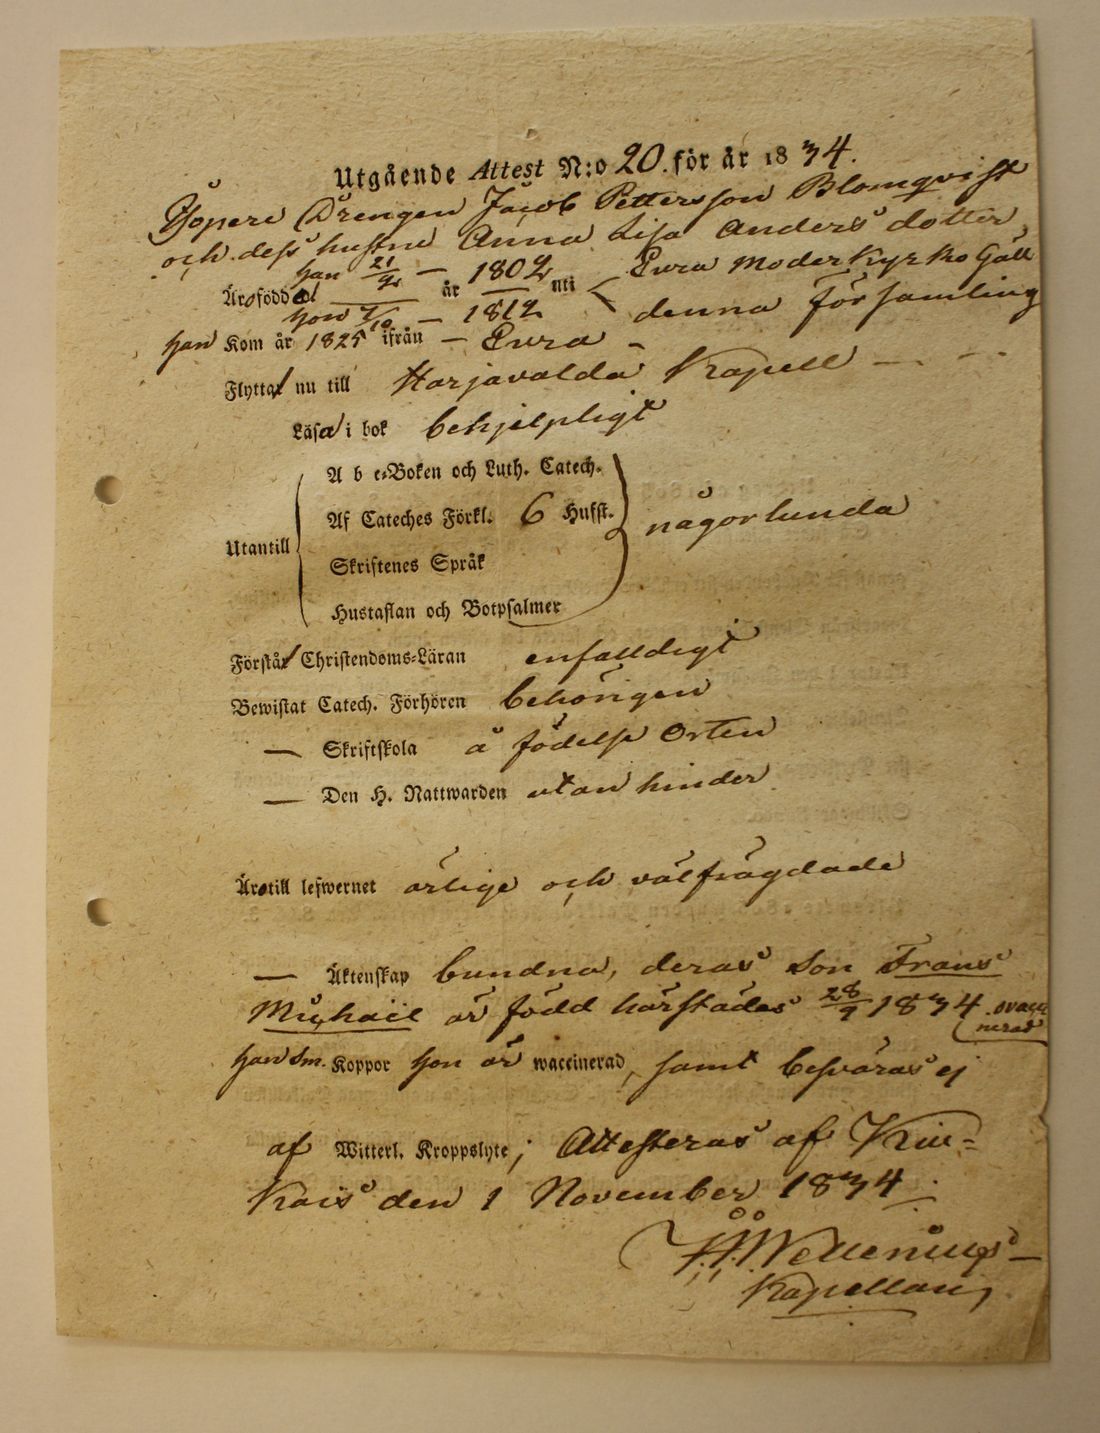 Utgående Attest N:o 20. för år 1834.
Drengen Jacob Pettersson Blomqvist
och dess hustru Anna Lisa Anders dotter,
han 21/9 — 1802 Eura Moderkyrko Gäll
Äro född år uti
hon 7/10 — 1812 denna församling
han Kom år 1825 ifrån — Eura —
Flytta nu till Harjavalda Kapell —
Läsa i bok behjelpligt
A b c-Boken och Luth. Catech.
Af Cateches Förkl. 6 Hufst. någorlunda
Utantill
Skriftenes Språk
Hustaflan och Botpsalmer
Förstå Christendoms-Läran enfalldigt
Bewistat Catech. Förhören behörigen
— Skriftskola å födelse Orten
— Den H. Nattwarden utan hinder
Äro till lefwernet ärlige och välfrägdade
— Äktenskap bundna, deras son Frans
Michaël är född härstädes 28/9 1834 ovacci
nerad
han Sm. Koppor hon är waccinerad, samt besväras ej
af Witterl. Kroppslyte; Attesteras af Kiu-
kais den 1 November 1834.
Kapellan